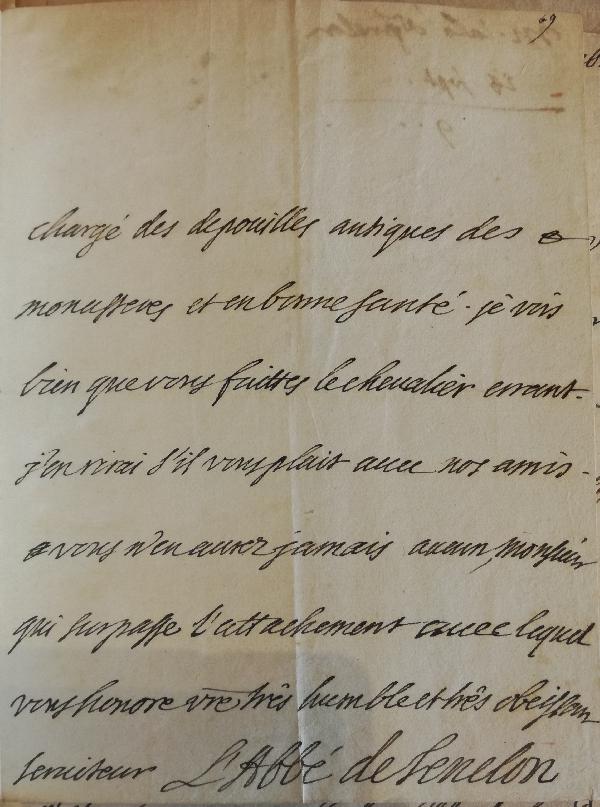 69
chargé des depouilles antiques des
monasteres et en bonne santé. je vois
bien que vous faittes le chevalier errant.
j'en rirai s'il vous plait avec nos amis.
vous n'en aurez jamais aucun, monsieur
qui surpasse l'attachement avec lequel
vous honore vre très humble et très obeissant
serviteur L'Abbé de Fenelon